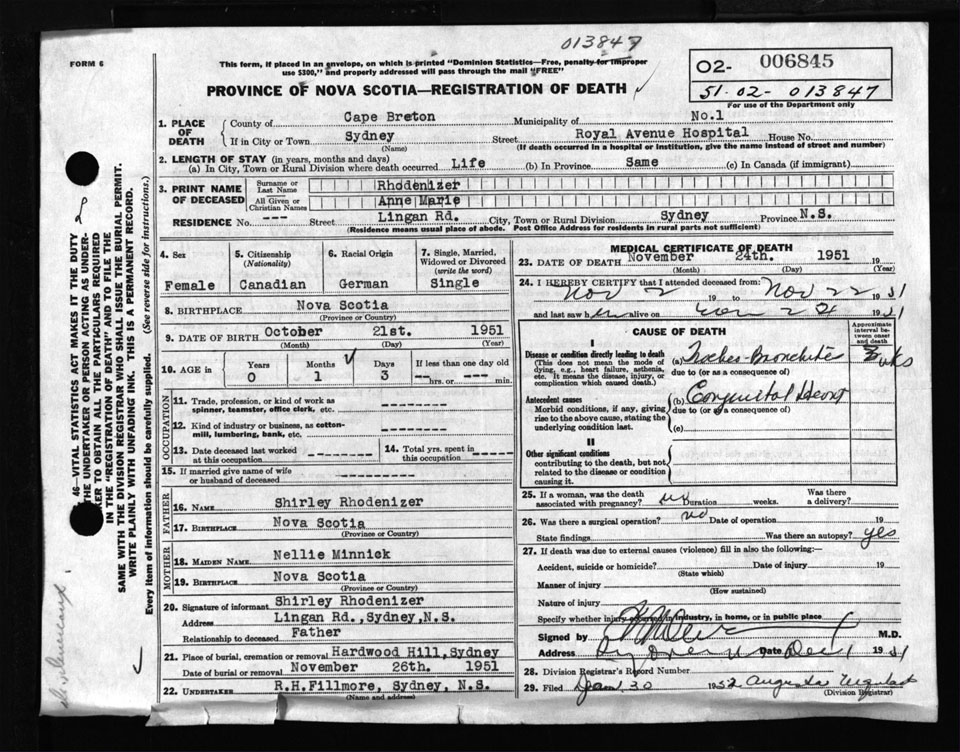 013847
FORM 6
This form, if placed in an envelope, on which is printed "Dominion Statistics—Free, penalty for improper
use $300," and properly addressed will pass through the mail "FREE"
PROVINCE OF NOVA SCOTIA—REGISTRATION OF DEATH
02- 006845
51-02- 013847
For use of the Department only
46—VITAL STATISTICS ACT MAKES IT THE DUTY
THE UNDERTAKER OR PERSON ACTING AS UNDER-
KER TO OBTAIN ALL THE PARTICULARS REQUIRED
IN THE "REGISTRATION OF DEATH" AND TO FILE THE
SAME WITH THE DIVISION REGISTRAR WHO SHALL ISSUE THE BURIAL PERMIT.
WRITE PLAINLY WITH UNFADING INK. THIS IS A PERMANENT RECORD.
Every item of information should be carefully supplied. (See reverse side for instructions.)
1. PLACE OF DEATH
County of Cape Breton Municipality of No.1
If in City or Town Sydney Street Royal Avenue Hospital House No.
(Name) (If death occurred in a hospital or institution, give the name instead of street and number)
2. LENGTH OF STAY (in years, months and days)
(a) In City, Town or Rural Division where death occurred Life (b) In Province Same (c) In Canada (if immigrant)
3. PRINT NAME OF DECEASED
Surname or Last Name Rhodenizer
All Given or Christian Names Anne Marie
RESIDENCE No. --- Street Lingan Rd. City, Town or Rural Division Sydney Province N.S.
(Residence means usual place of abode. Post Office Address for residents in rural parts not sufficient)
4. Sex
Female
5. Citizenship
(Nationality)
Canadian
6. Racial Origin
German
7. Single, Married,
Widowed or Divorced
(write the word)
Single
8. BIRTHPLACE Nova Scotia
(Province or Country)
9. DATE OF BIRTH October 21st. 1951
(Month) (Day) (Year)
10. AGE in
Years Months Days If less than one day old
0 1 3 --hrs. or -- min.
OCCUPATION
11. Trade, profession, or kind of work as
spinner, teamster, office clerk, etc.
12. Kind of industry or business, as cotton-
mill, lumbering, bank, etc.
13. Date deceased last worked
at this occupation
14. Total yrs. spent in
this occupation
15. If married give name of wife
or husband of deceased
FATHER
16. NAME Shirley Rhodenizer
17. BIRTHPLACE Nova Scotia
(Province or Country)
MOTHER
18. MAIDEN NAME Nellie Minnick
19. BIRTHPLACE Nova Scotia
(Province or Country)
20. Signature of informant Shirley Rhodenizer
Address Lingan Rd.,Sydney,N.S.
Relationship to deceased Father
21. Place of burial, cremation or removal Hardwood Hill, Sydney
Date of burial or removal November 26th. 1951
22. UNDERTAKER R.H.Fillmore, Sydney, N.S.
(Name and address)
MEDICAL CERTIFICATE OF DEATH
23. DATE OF DEATH November 24th. 1951 19
(Month) (Day) (Year)
24. I HEREBY CERTIFY that I attended deceased from:
Nov 2 19 to Nov 22 1951
and last saw h alive on Nov 22 1951
CAUSE OF DEATH
Approximate
interval be-
tween onset
and death
I
Disease or condition directly leading to death
(This does not mean the mode of
dying, e.g., heart failure, asthenia,
etc. It means the disease, injury, or
complication which caused death.)
(a) Bronchitis wks
due to (or as a consequence of)
Antecedent causes
Morbid conditions, if any, giving
rise to the above cause, stating the
underlying condition last.
(b) Congenital Heart
due to (or as a consequence of)
(c)
II
Other significant conditions
contributing to the death, but not
related to the disease or condition
causing it.
25. If a woman, was the death
associated with pregnancy? no Duration weeks. Was there
a delivery?
26. Was there a surgical operation? no Date of operation 19
State findings Was there an autopsy? yes
27. If death was due to external causes (violence) fill in also the following:—
Accident, suicide or homicide? Date of injury 19
(State which)
Manner of injury
(How sustained)
Nature of injury
Specify whether injury occurred in industry, in home, or in public place
Signed by M.D.
Address Date Dec 1 1951
28. Division Registrar's Record Number
29. Filed Jan 30 1952 Augusta
(Division Registrar)